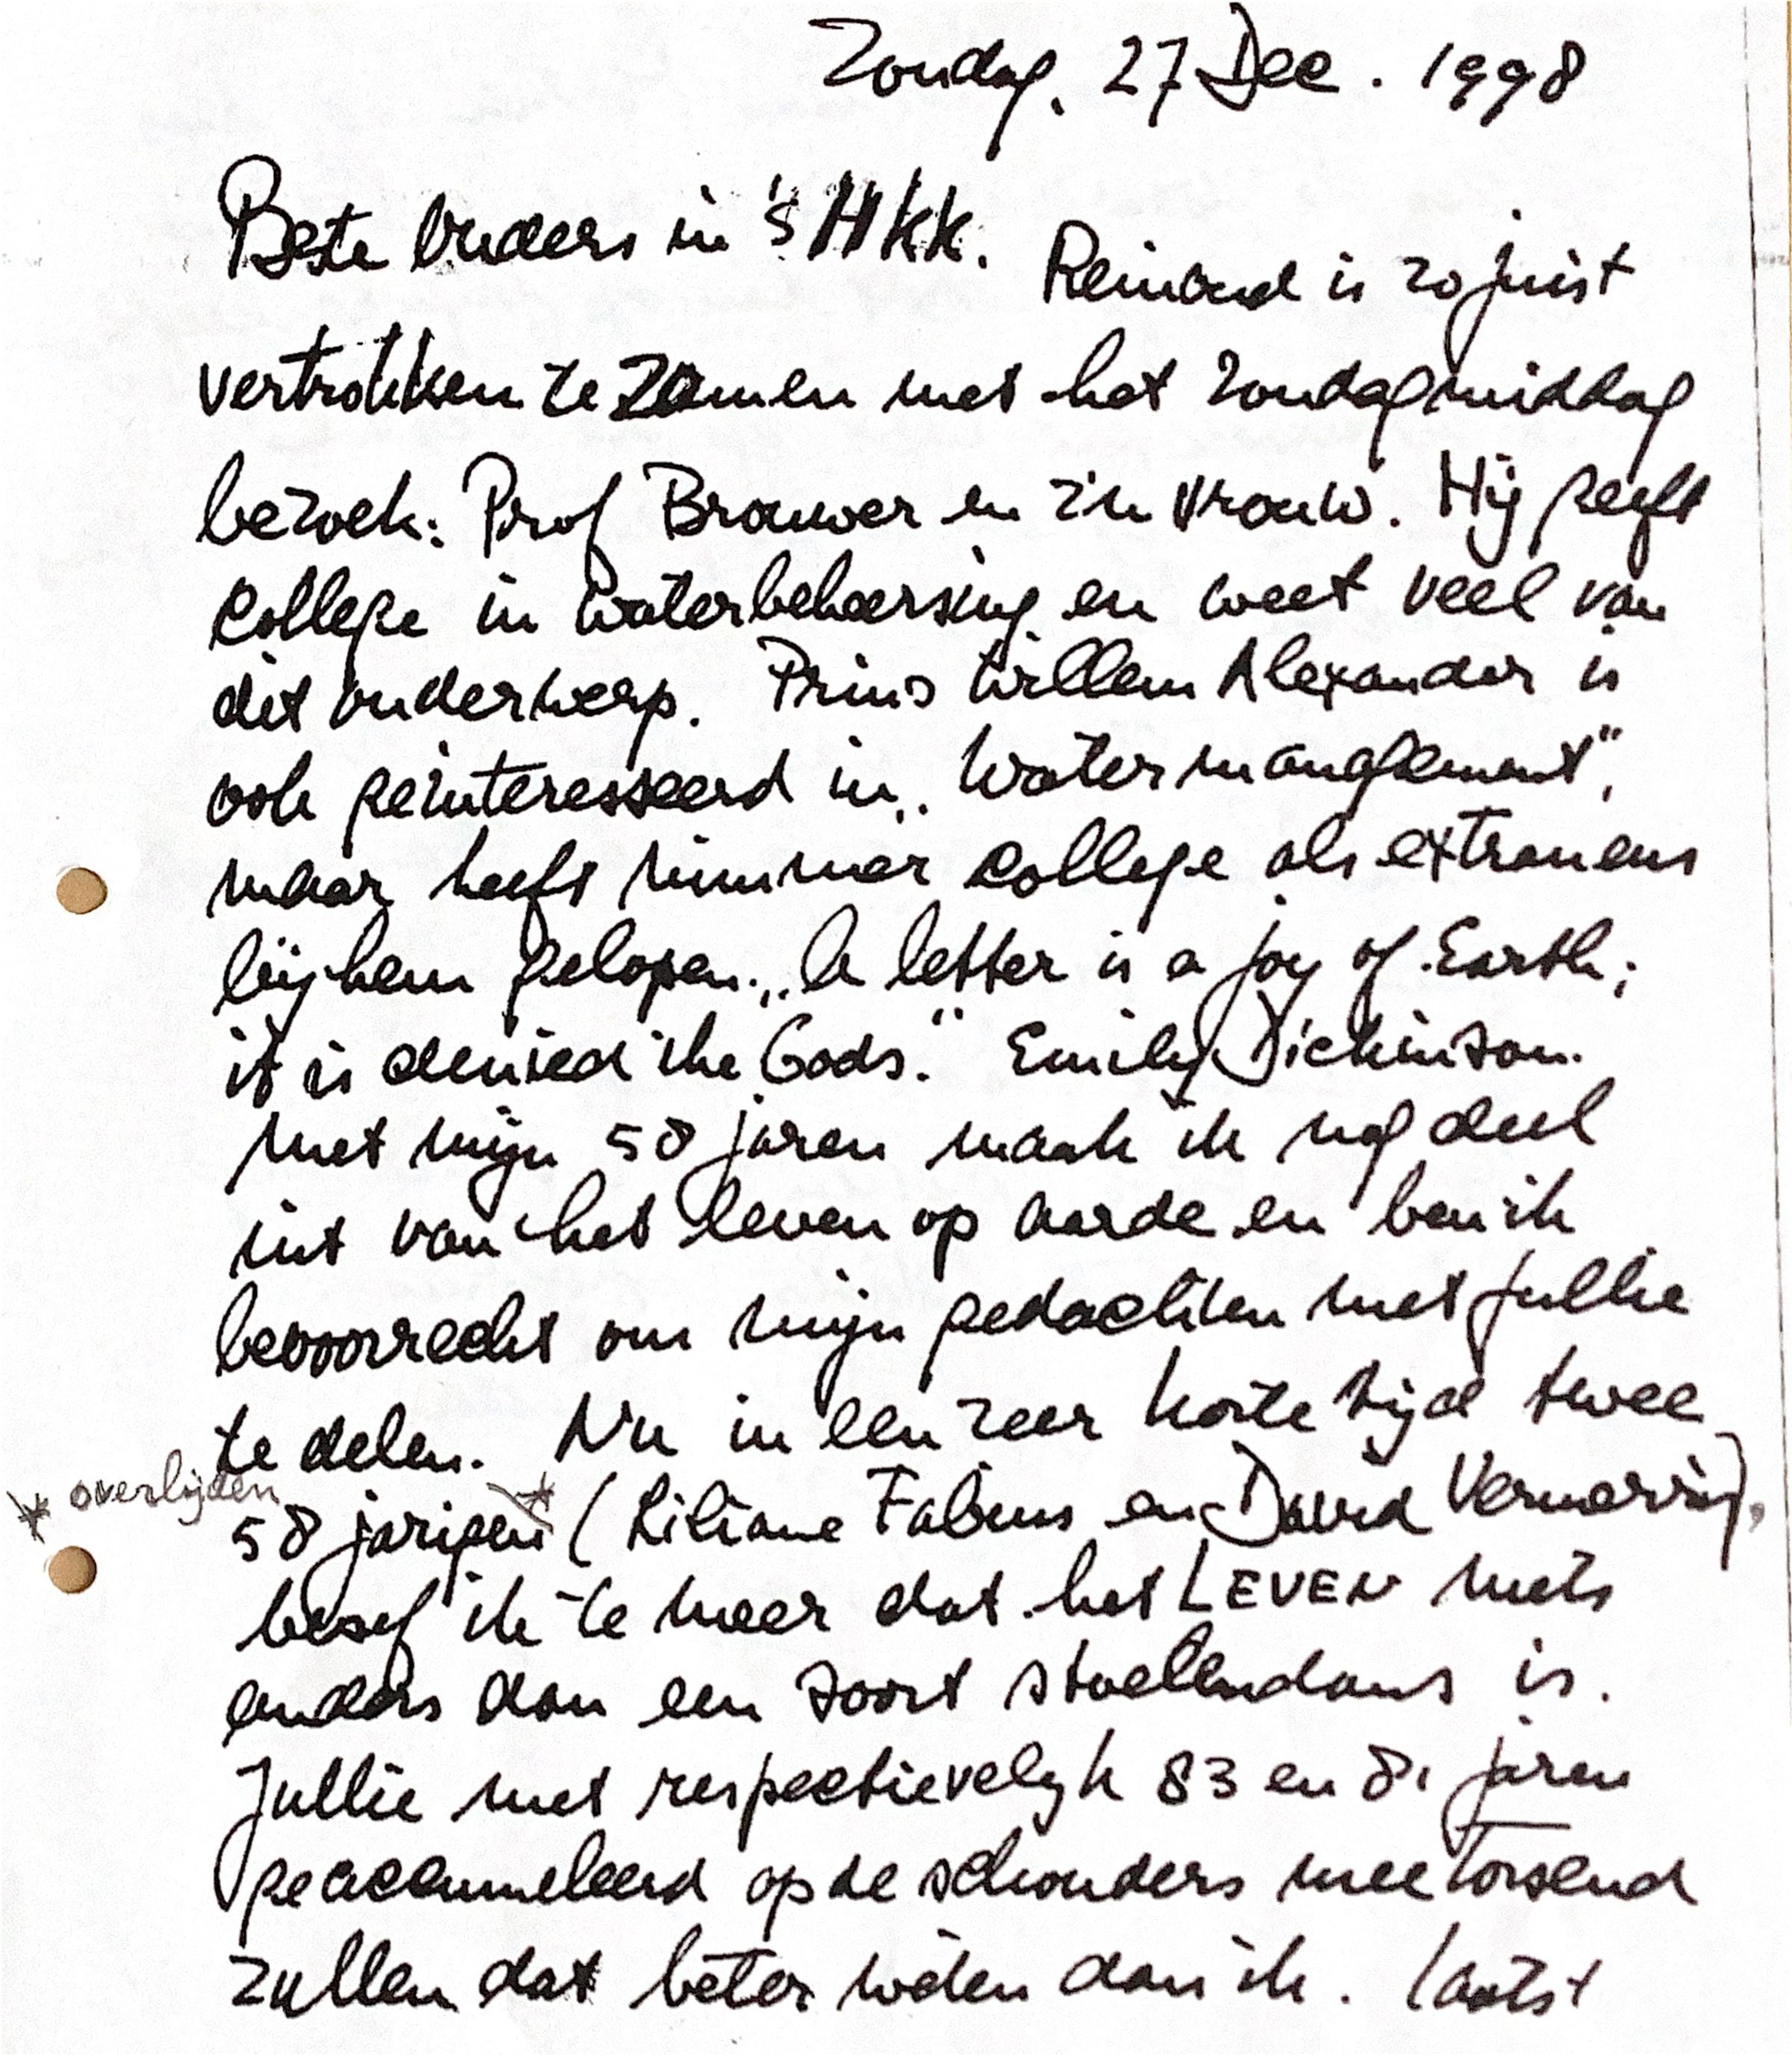 Zondag, 27 Dec. 1998
Beste Ouders in 's HKK.
Reinoud is zojuist
vertrokken te zamen met het zondagmiddag
bezoek: Prof Brouwer en z'n vrouw. Hij geeft
college in Waterbeheersing en weet veel van
dit onderwerp. Prins Willem Alexander is
ook geinteresseerd in „Watermanagement",
maar heeft nimmer college als extraneus
bij hem gelopen. „A letter is a joy of Earth;
it is denied the Gods." Emily Dickinson.
Met mijn 58 jaren maak ik nog deel
uit van het leven op aarde en ben ik
bevoorrecht om mijn gedachten met jullie
te delen. Nu in een zeer korte tijd twee
* overlijden
58 jarigen * (Liliane Fabius en David Vermaring),
besef ik te meer dat het LEVEN niets
anders dan een soort stoelendans is.
Jullie met respectievelijk 83 en 81 jaren
geaccumuleerd op de schouders mee torsend
zullen dat beter weten dan ik. Laatst